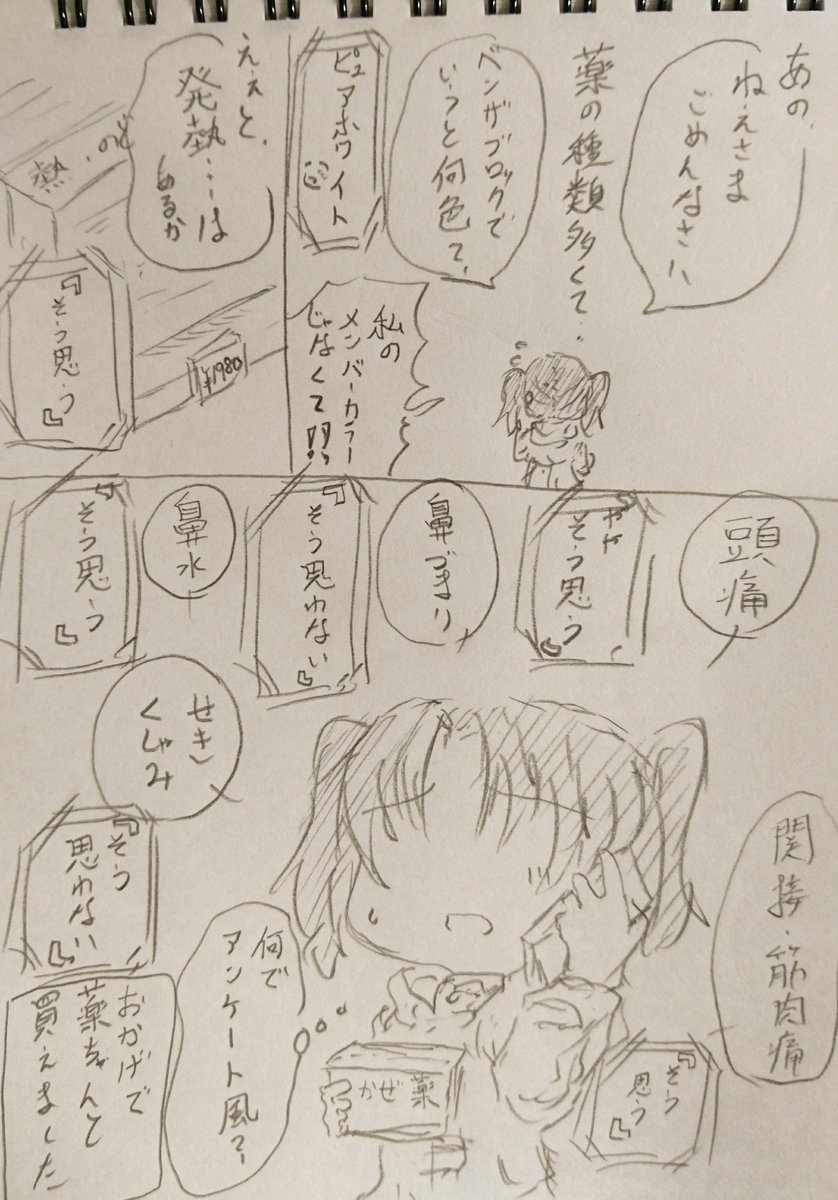 あの、
ねえさま
ごめんなさい
薬の種類多くて…
ベンザブロックで
いうと何色て、
ピュアホワイト
私の
メンバーカラー
じゃなくて!!
ええと、
発熱…は
あるか
熱・のど
『そう思う』
¥1980
頭痛
『やや
そう思う』
鼻づまり
『そう思わない』
鼻水
『そう思う』
せき
くしゃみ
『そう
思わない』
関接・筋肉痛
『そう
思う』
何で
アンケート風?
かぜ薬
おかげで
薬ちゃんと
買えました